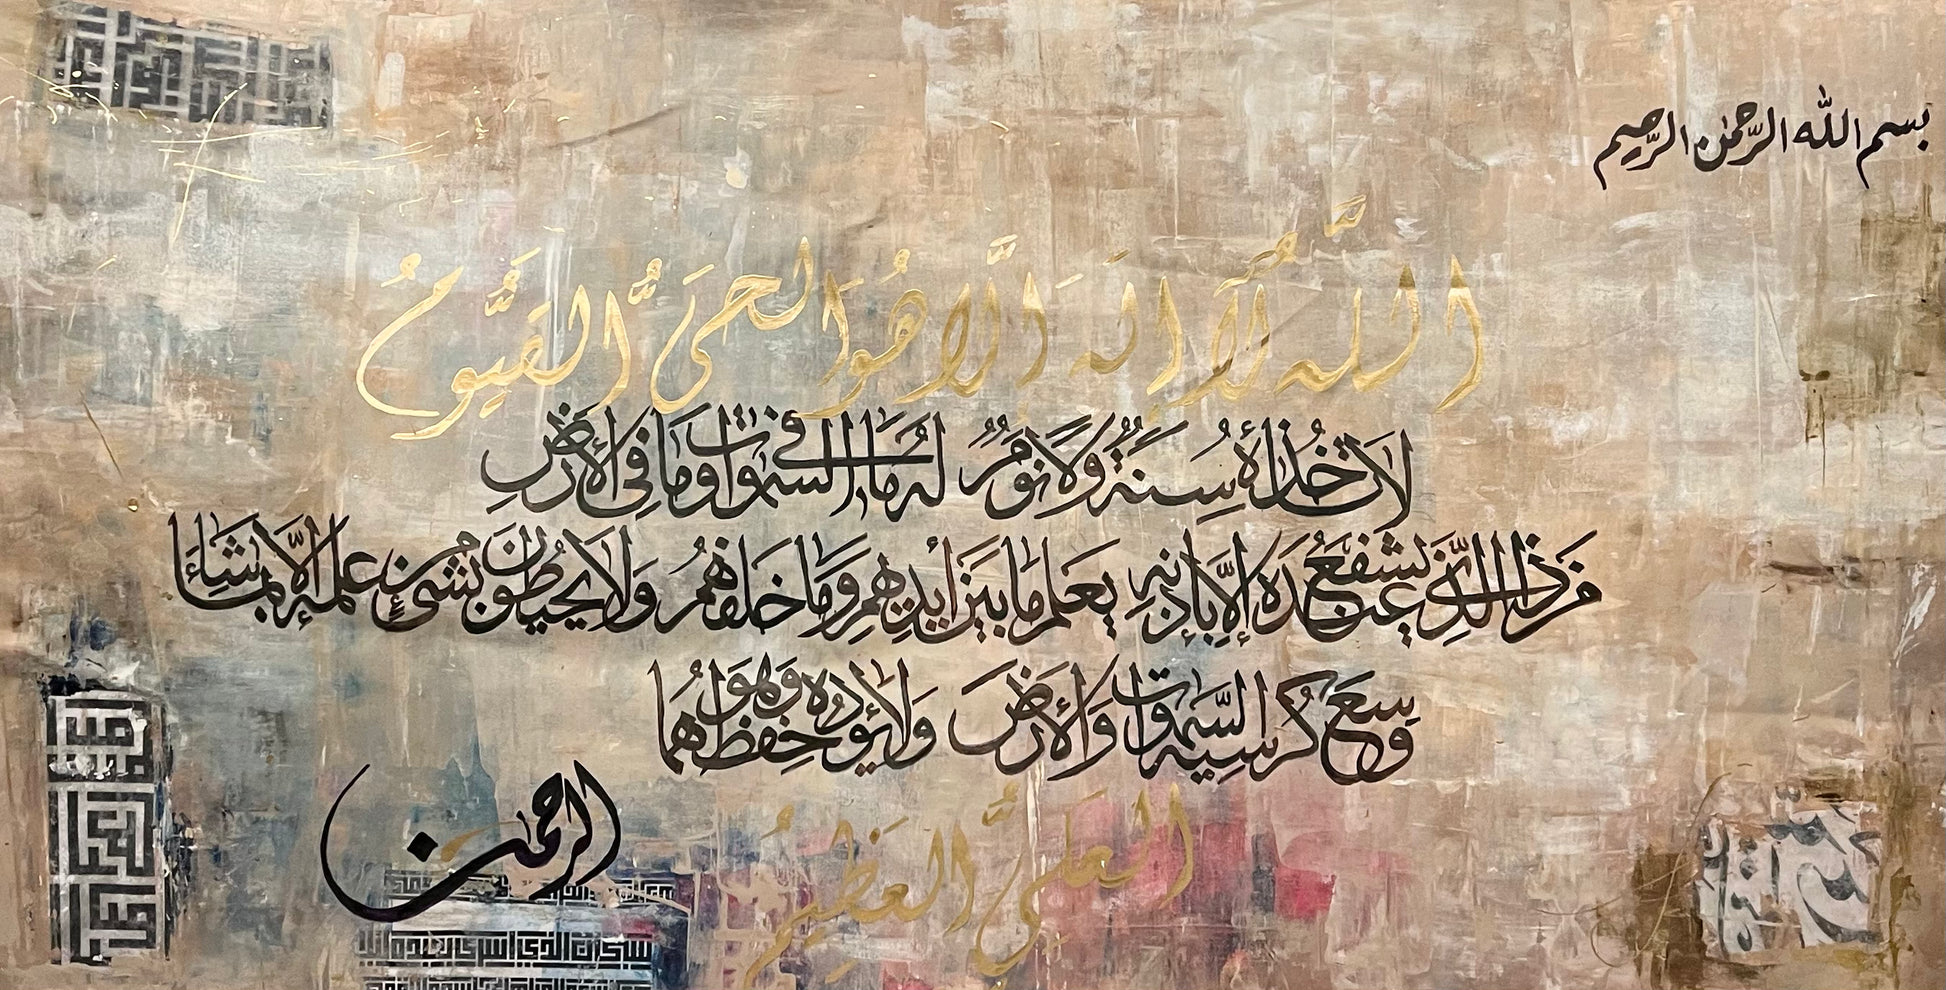 بسم الله الرحمن الرحيم
اللَّهُ لَآ إِلَهَ إِلَّا هُوَ الحَيُّ القَيُّومُ
لَا تَأْخُذُهُ سِنَةٌ وَلَا نَوْمٌ لَهُ مَا فِي السموات وَمَا فِي الأَرْضِ
مَن ذَا الَّذِي يَشْفَعُ عِندَهُ إِلَّا بِإِذْنِهِ يَعْلَمُ مَا بَيْنَ أَيْدِيهِمْ وَمَا خَلْفَهُمْ وَلَا يُحِيطُونَ بِشَيْءٍ مِنْ عِلْمِهِ إِلَّا بِمَا شَاءَ
وَسِعَ كُرْسِيُّهُ السَّمَوَاتِ وَالأَرْضَ وَلَا يَئُودُهُ حِفْظُهُمَا وَهُوَ
العَلِيُّ العَظِيمُ
الرحمن